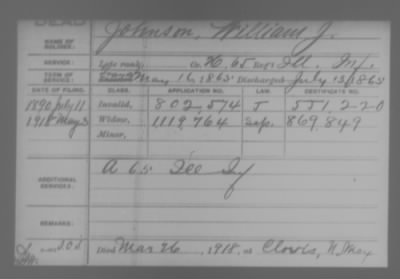 DEAD
NAME OF SOLDIER: Johnson, William J.
SERVICE: Late rank, Co. H, 65 Reg't Ill. Inf.
TERM OF SERVICE: May 16, 1865 Discharged July 13, 1865
DATE OF FILING. CLASS. APPLICATION NO. LAW. CERTIFICATE NO.
1890 July 11 Invalid, 802,574 J 551,220
1918 May 3 Widow, 1119,764 Sep. 869,849
Minor,
ADDITIONAL SERVICES: A 65 Ill Inf
REMARKS:
Died Mar 26, 1918, at Clovis, N Mex